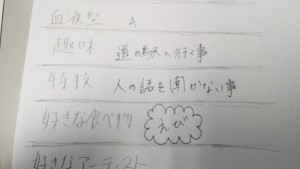 血液型 A
趣味 道の駅へ行く事
特技 人の話を聞かない事
好きな食べ物 えび
好きなアーティスト